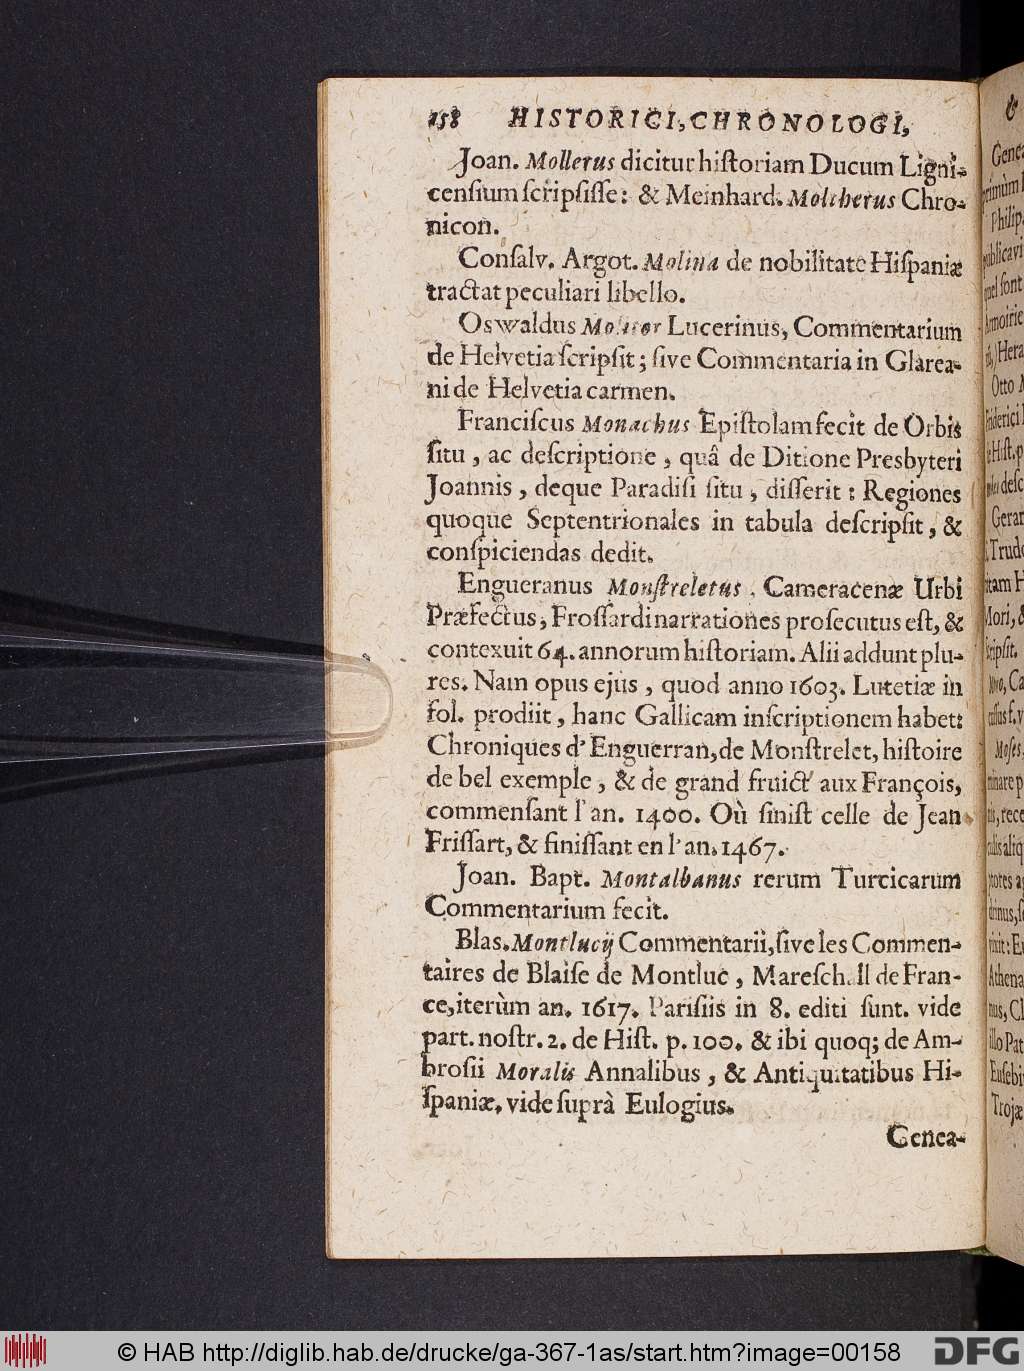 158 HISTORICI, CHRONOLOGI,
Joan. Mollerus dicitur historiam Ducum Ligni-
censium scripsisse: & Meinhard. Moltherus Chro-
nicon.
Consalv. Argot. Molina de nobilitate Hispaniæ
tractat peculiari libello.
Oswaldus Molitor Lucerinus, Commentarium
de Helvetia scripsit; sive Commentaria in Glarea-
ni de Helvetia carmen.
Franciscus Monachus Epistolam fecit de Orbis
situ, ac descriptione, quâ de Ditione Presbyteri
Joannis, deque Paradisi situ, disserit: Regiones
quoque Septentrionales in tabula descripsit, &
conspiciendas dedit.
Engueranus Monstreletus, Cameracenæ Urbi
Præfectus, Frossardi narrationes prosecutus est, &
contexuit 64. annorum historiam. Alii addunt plu-
res. Nam opus ejus, quod anno 1603. Lutetiæ in
fol. prodiit, hanc Gallicam inscriptionem habet:
Chroniques d'Enguerran, de Monstrelet, histoire
de bel exemple, & de grand fruict aux François,
commensant l'an. 1400. Où finist celle de Jean
Frissart, & finissant en l'an. 1467.
Joan. Bapt. Montalbanus rerum Turcicarum
Commentarium fecit.
Blas. Montlucij Commentarii, sive les Commen-
taires de Blaise de Montluc, Mareschall de Fran-
ce, iterùm an. 1617. Parisiis in 8. editi sunt. vide
part. nostr. 2. de Hist. p. 100. & ibi quoq; de Am-
brosii Moralis Annalibus, & Antiquitatibus Hi-
spaniæ. vide suprà Eulogius.
Genea-
&
Genea
primùm
Philip
publicavi
quel sont
Armoirie
Hera
Otto
Friderici
Hist. p
desc
Gerar
Trudo
itam H
Mori, &
scripsit.
Ca
Moses
rece
alis aliq
Eu
Athena
nus, Cl
illo Pat
Eusebi
Trojæ
© HAB http://diglib.hab.de/drucke/ga-367-1as/start.htm?image=00158
DFG